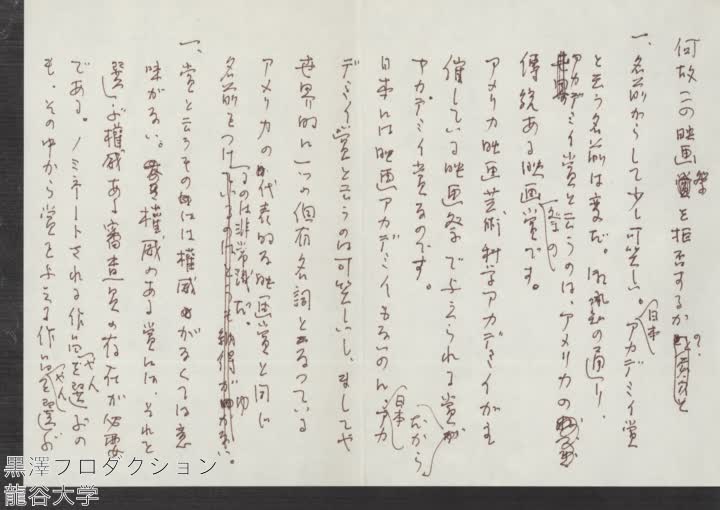 何故この映画祭を拒否するか?
一、名前からして少し可笑しい。日本アカデミイ賞
と云う名前は変だ。御承知の通り、
アカデミイ賞と云うのは、アメリカの
傳統ある映画賞です。
アメリカ映画芸術科学アカデミイが主
催している映画祭で与えられる賞が
アカデミイ賞なのです。
日本には映画アカデミイもないのに、だから日本アカ
デミイ賞と云うのは可笑しいし、ましてや
世界的に一つの個有名詞となっている
アメリカの代表的な映画賞と同じ
名前をつけるのは非常識だ。
一、賞と云うものには権威がなくては意
味がない。権威のある賞には、それを
選ぶ権威ある審査員の存在が必要
である。ノミネートされる作品を選ぶの
も、その中から賞を与える作品を選ぶ
黒澤プロダクション
龍谷大学